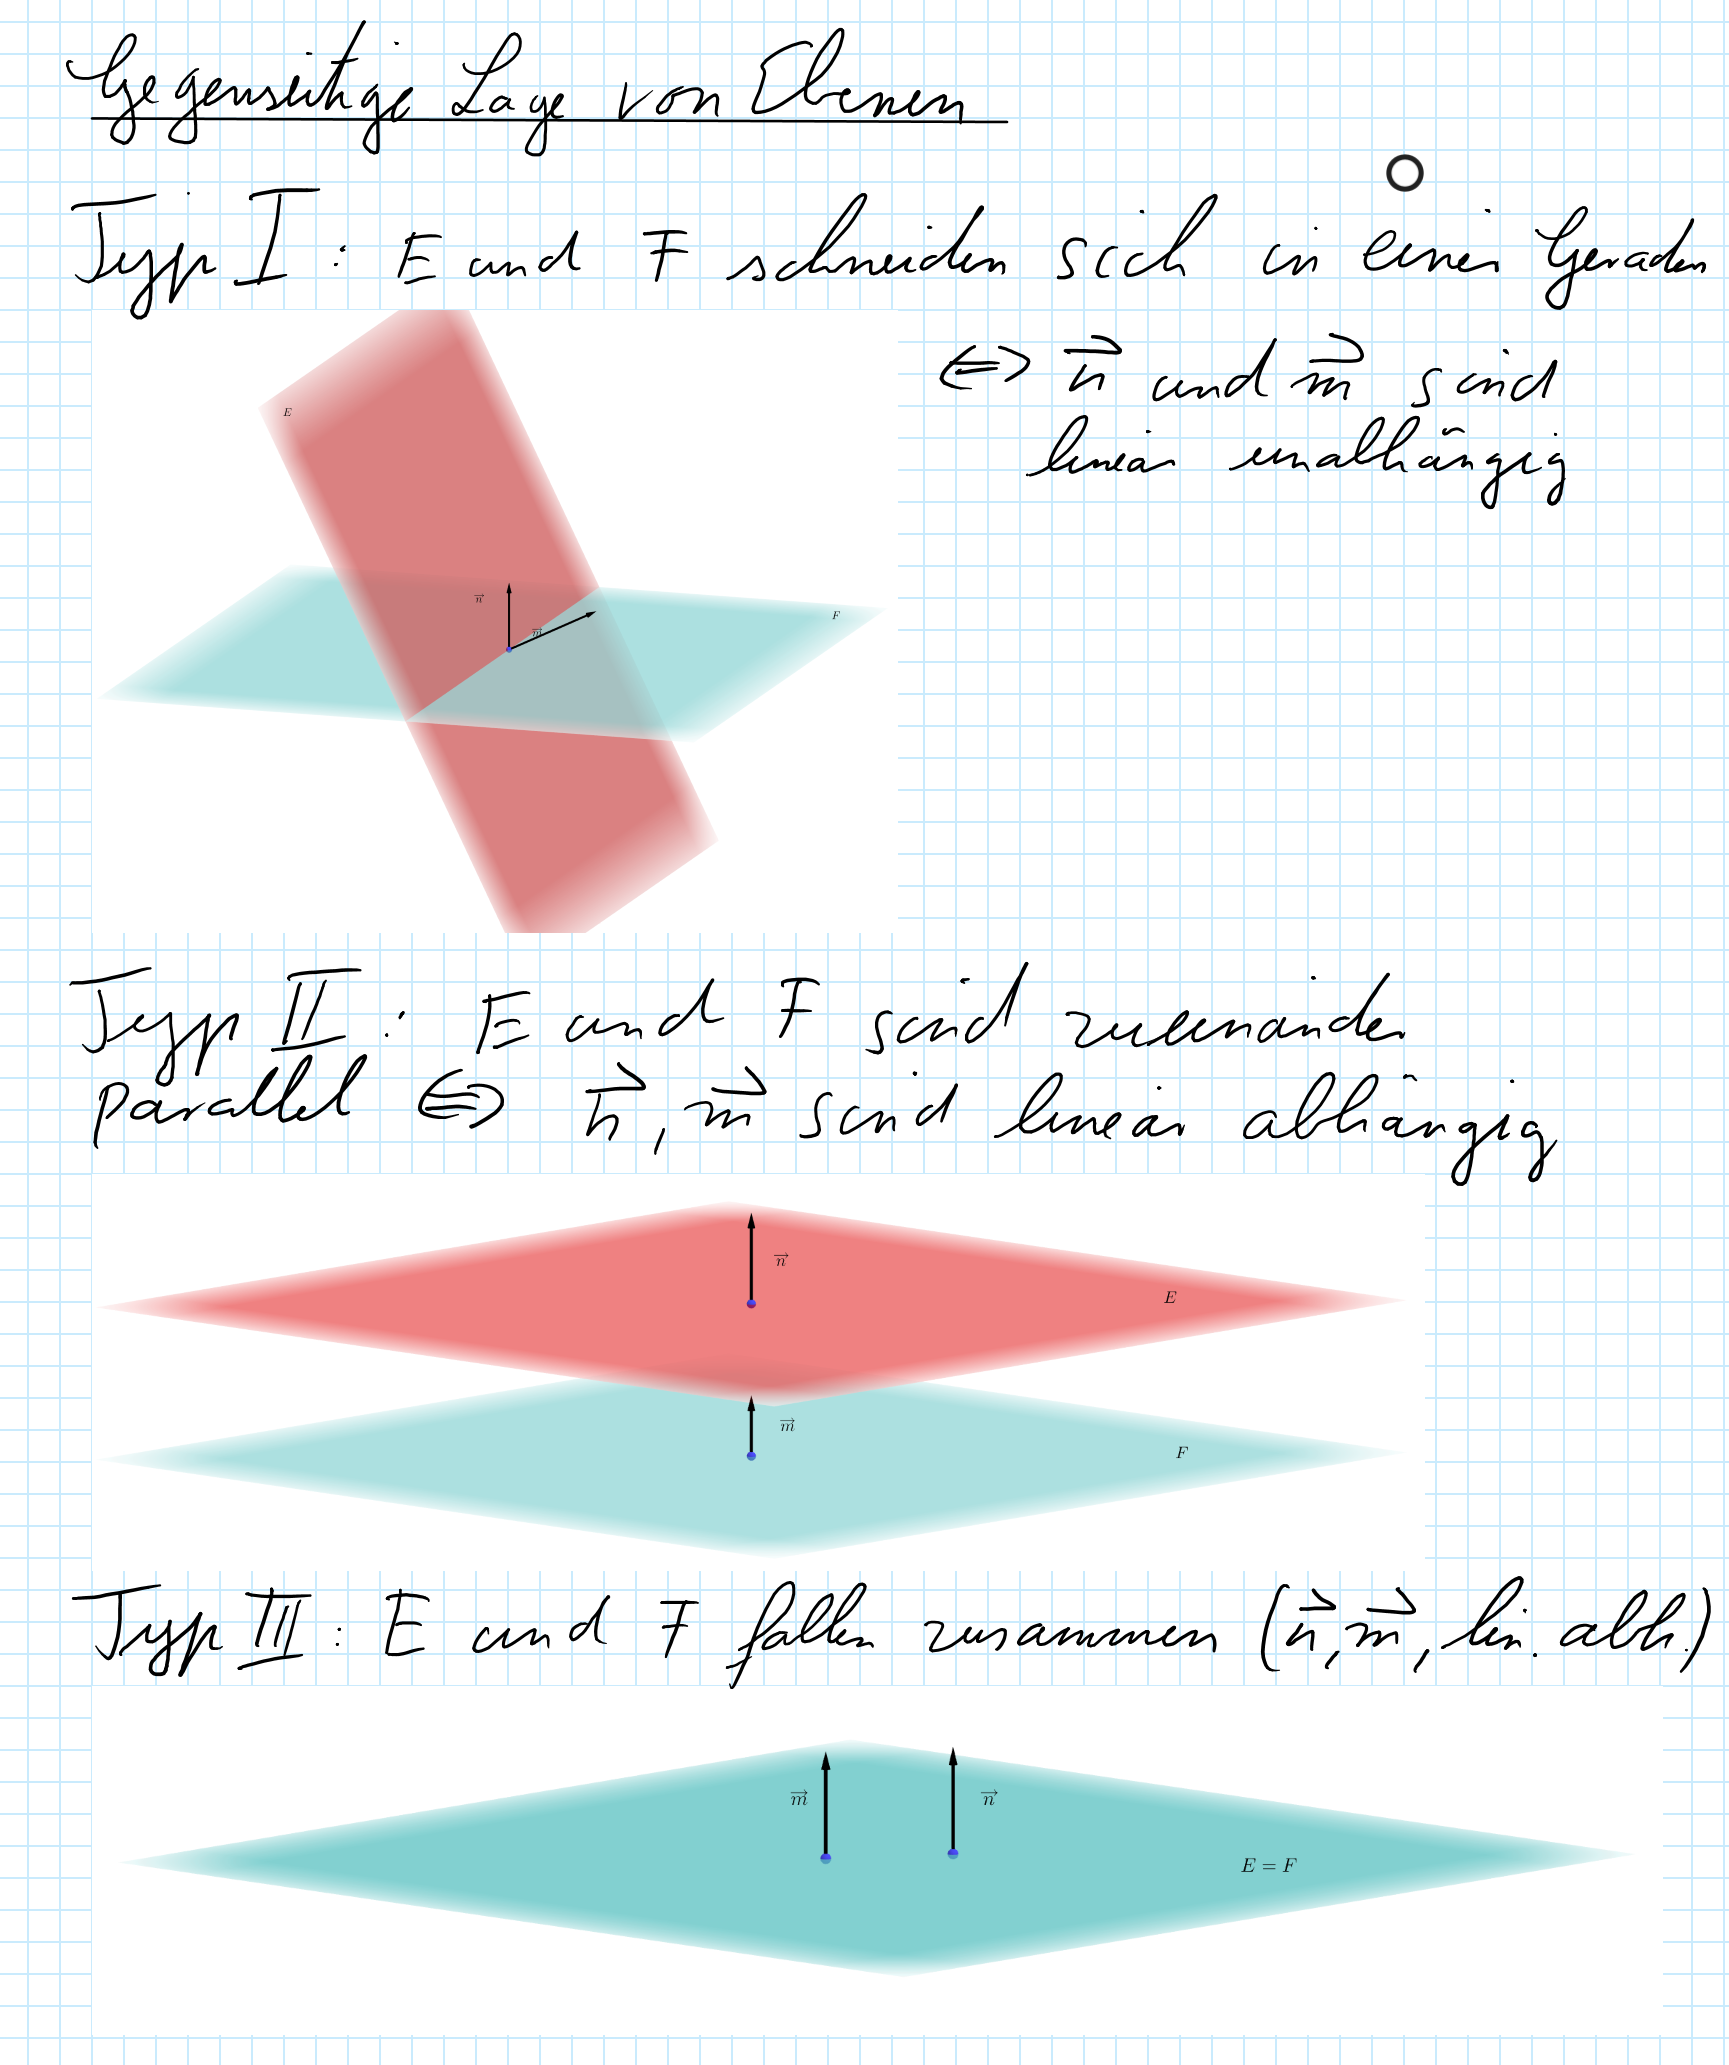 Gegenseitige Lage von Ebenen
Typ I: E und F schneiden sich in einer Geraden
⇔ n⃗ und m⃗ sind
linear unabhängig
E
n⃗
F
m⃗
Typ II: E und F sind zueinander
parallel ⇔ n⃗, m⃗ sind linear abhängig
n⃗
E
m⃗
F
Typ III: E und F fallen zusammen (n⃗, m⃗, lin. abh.)
m⃗ n⃗
E = F